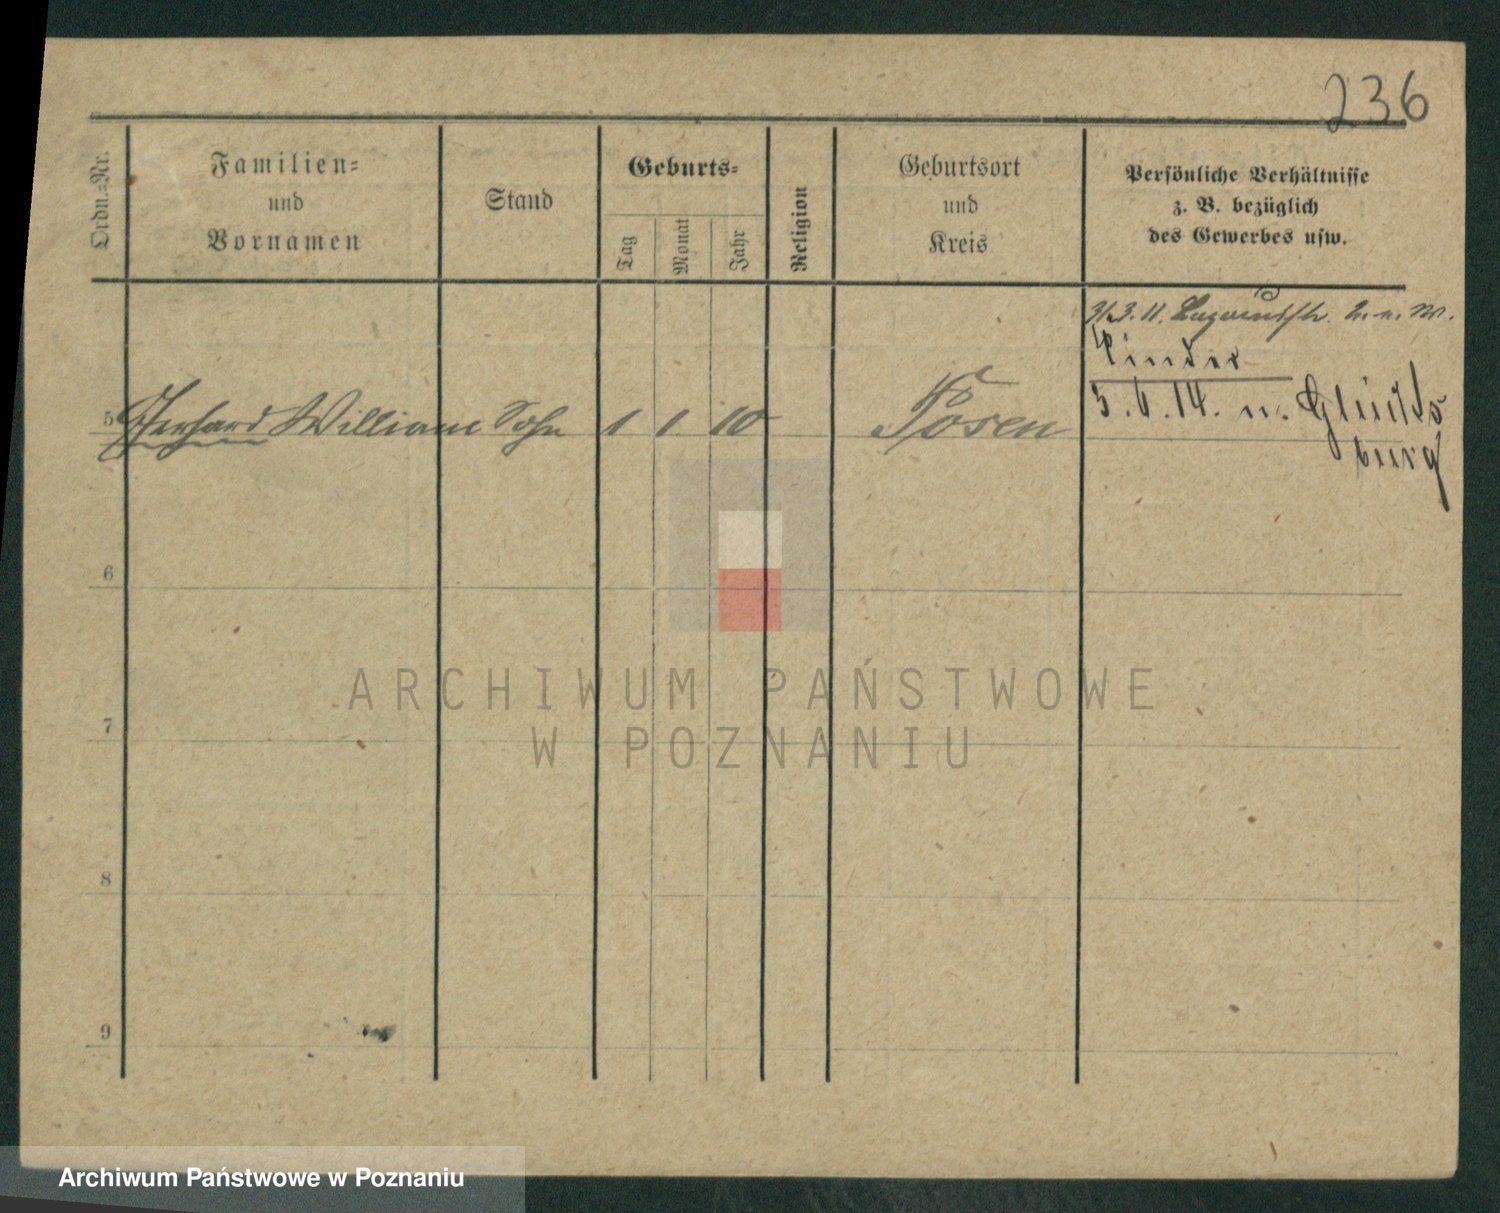 236
Ordn.-Nr.
Familien-
und
Vornamen
Stand
Geburts-
Tag
Monat
Jahr
Religion
Geburtsort
und
Kreis
Persönliche Verhältnisse
z. B. bezüglich
des Gewerbes usw.
3.11.
Kinder
5 Gerhard William Sohn 1 1 10 Posen
3.6.14. n. Glücks
burg
6
7
8
9
ARCHIWUM PAŃSTWOWE
W POZNANIU
Archiwum Państwowe w Poznaniu